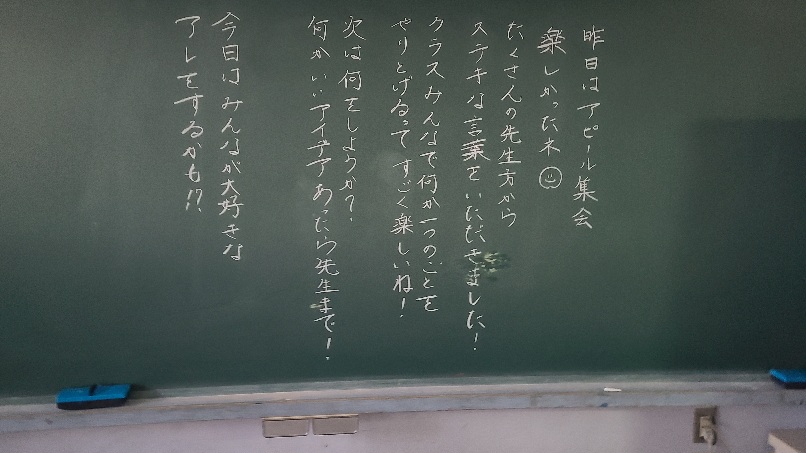 昨日はアピール集会
楽しかったネ☺
たくさんの先生方から
ステキな言葉をいただきました！
クラスみんなで何か一つのことを
やりとげるってすごく楽しいね！
次は何をしようか？
何かいいアイデアあったら先生まで！
今日はみんなが大好きな
アレをするかも!?